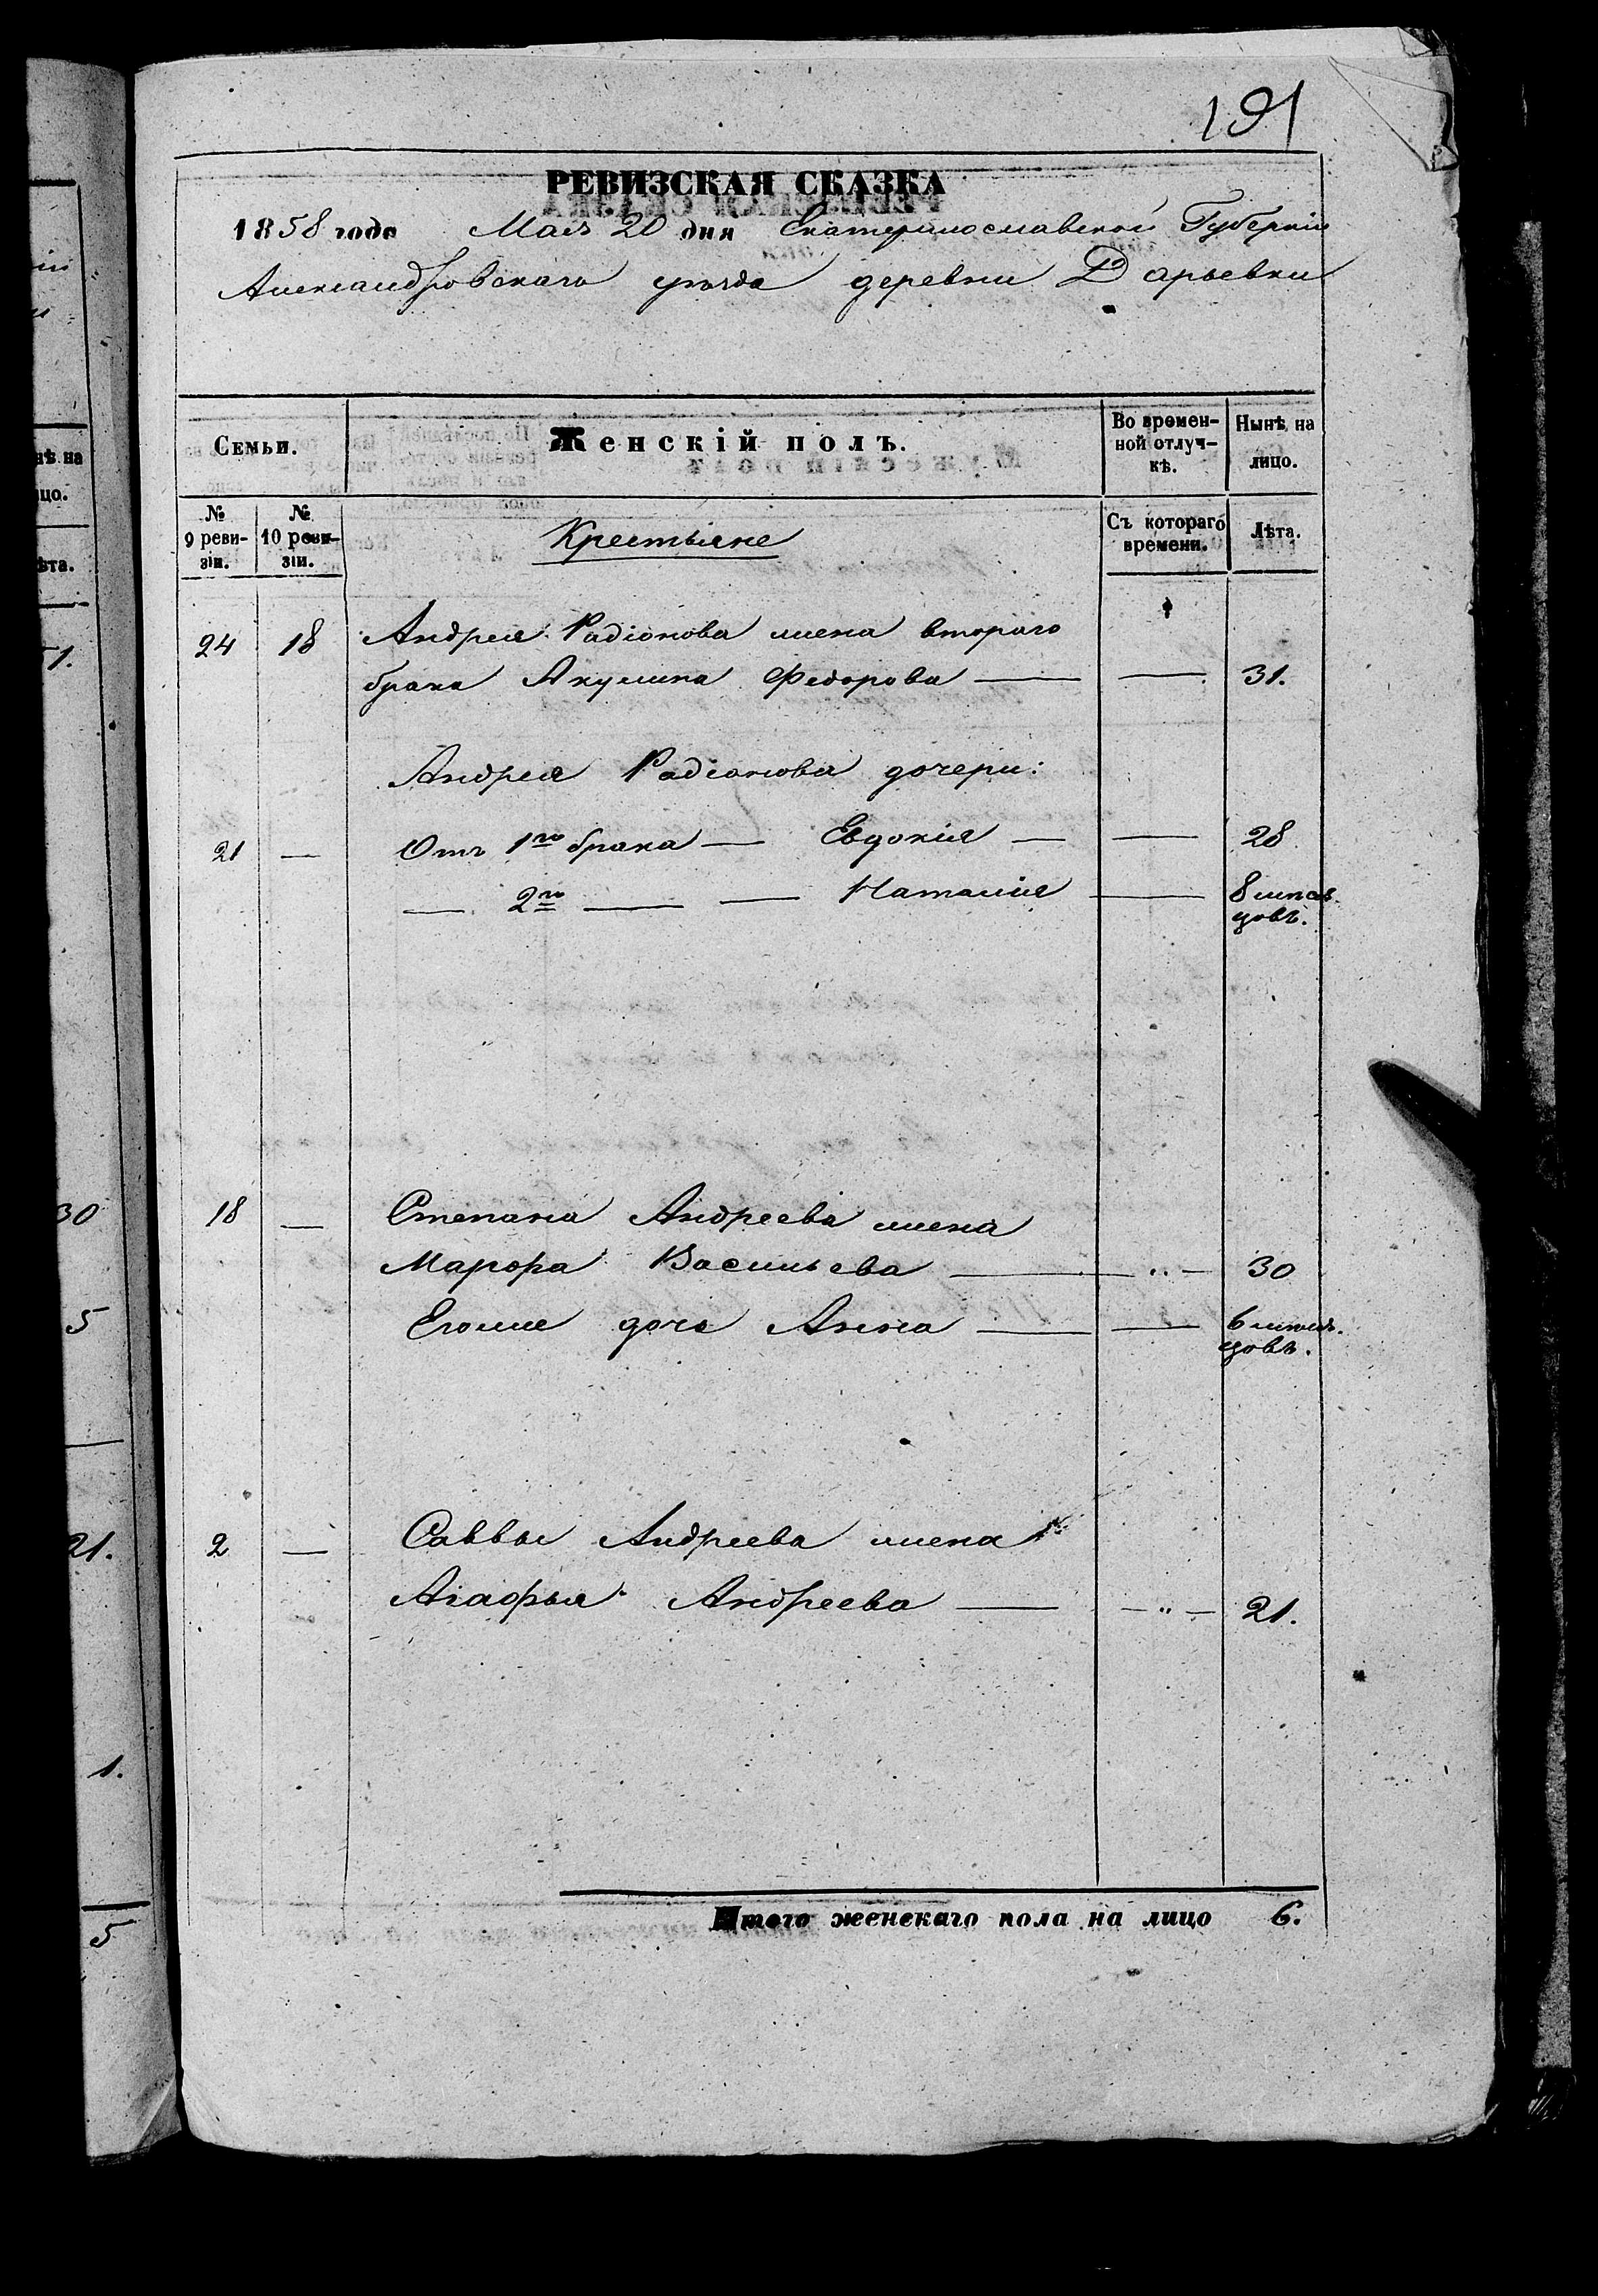 191
РЕВИЗСКАЯ СКАЗКА
1858 года Мая 20 дня Екатеринославской Губерніи
Александровскаго уѣзда деревни Дарьевки
Семьи. Женскій полъ. Во времен- Нынѣ на
ной отлуч- лицо.
кѣ.
№ № Крестьяне Съ котораго Лѣта.
9 реви- 10 реви- времени.
зіи. зіи.
24 18 Андрея Радіонова жена втораго
брака Акулина Федорова — — 31.
Андрея Радіонова дочери:
21 — Отъ 1го брака — Евдокія — — 28
— 2го — — Наталія — 8 мѣся-
цовъ.
18 — Степана Андреева жена
Марфа Васильева — „ — 30
Егоже дочь Анна — — 6 мѣся-
цовъ.
2 — Саввы Андреева жена
Агафья Андреева — — „ — 21.
Итого женскаго пола на лицо 6.
51.
30
5
21.
1.
5